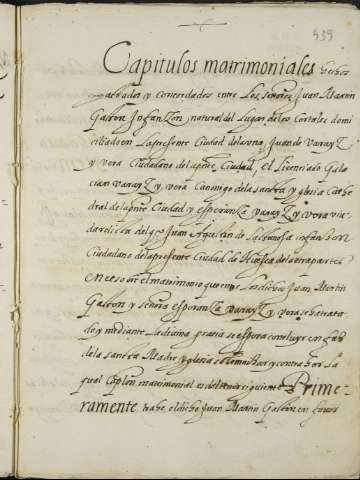 439
Capitulos matrimoniales hechos
pactados y concordados entre los señores Juan Martin
Galeon Infanzon natural del lugar de los Corrales domi
ciliado en la presente Ciudad de la una, Juan de Varayz
y Vera Ciudadano de la pnte Ciudad, el Licenciado Gala
cian Varayz y Vera Canonigo de la sancta yglesia Cathe
dral de la pnte Ciudad y esperanza Varayz y Vera viu
da relicta del qo Juan Aguilon de Infanzon
Ciudadano de la presente Ciudad de Huesca de la otra partes
en et sobre el matrimonio que entre los dichos Juan Martin
Galeon y señora esperanza Varayz y Vera se ha trata
do y mediante la divina gracia se espera concluyr en faz
de la sancta Madre yglesia
qual Caplon matrimonial es del tenor siguiente Prime
ramente trahe el dicho Juan Martin Galeon en favor